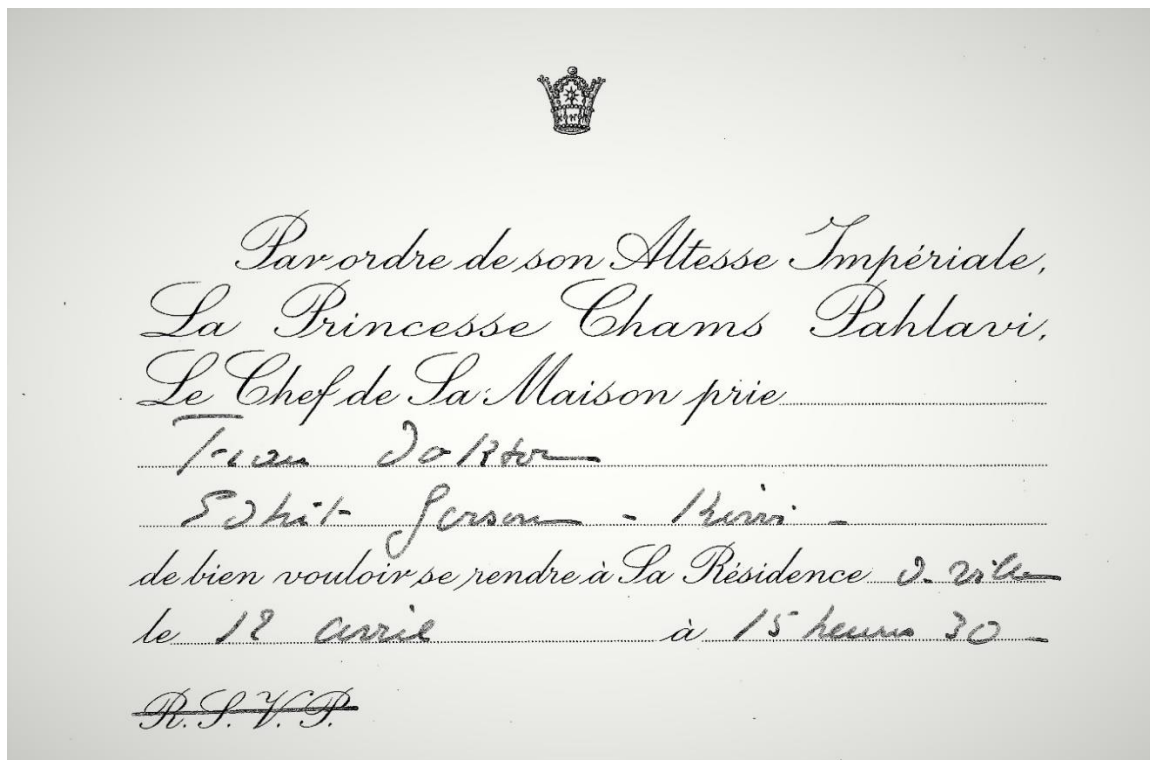 Par ordre de son Altesse Impériale,
La Princesse Chams Pahlavi,
Le Chef de Sa Maison prie
Frau Doktor
Edhit Gerson - Kiwi -
de bien vouloir se rendre à Sa Résidence
le 12 avril à 15 heures 30
R.S.V.P.